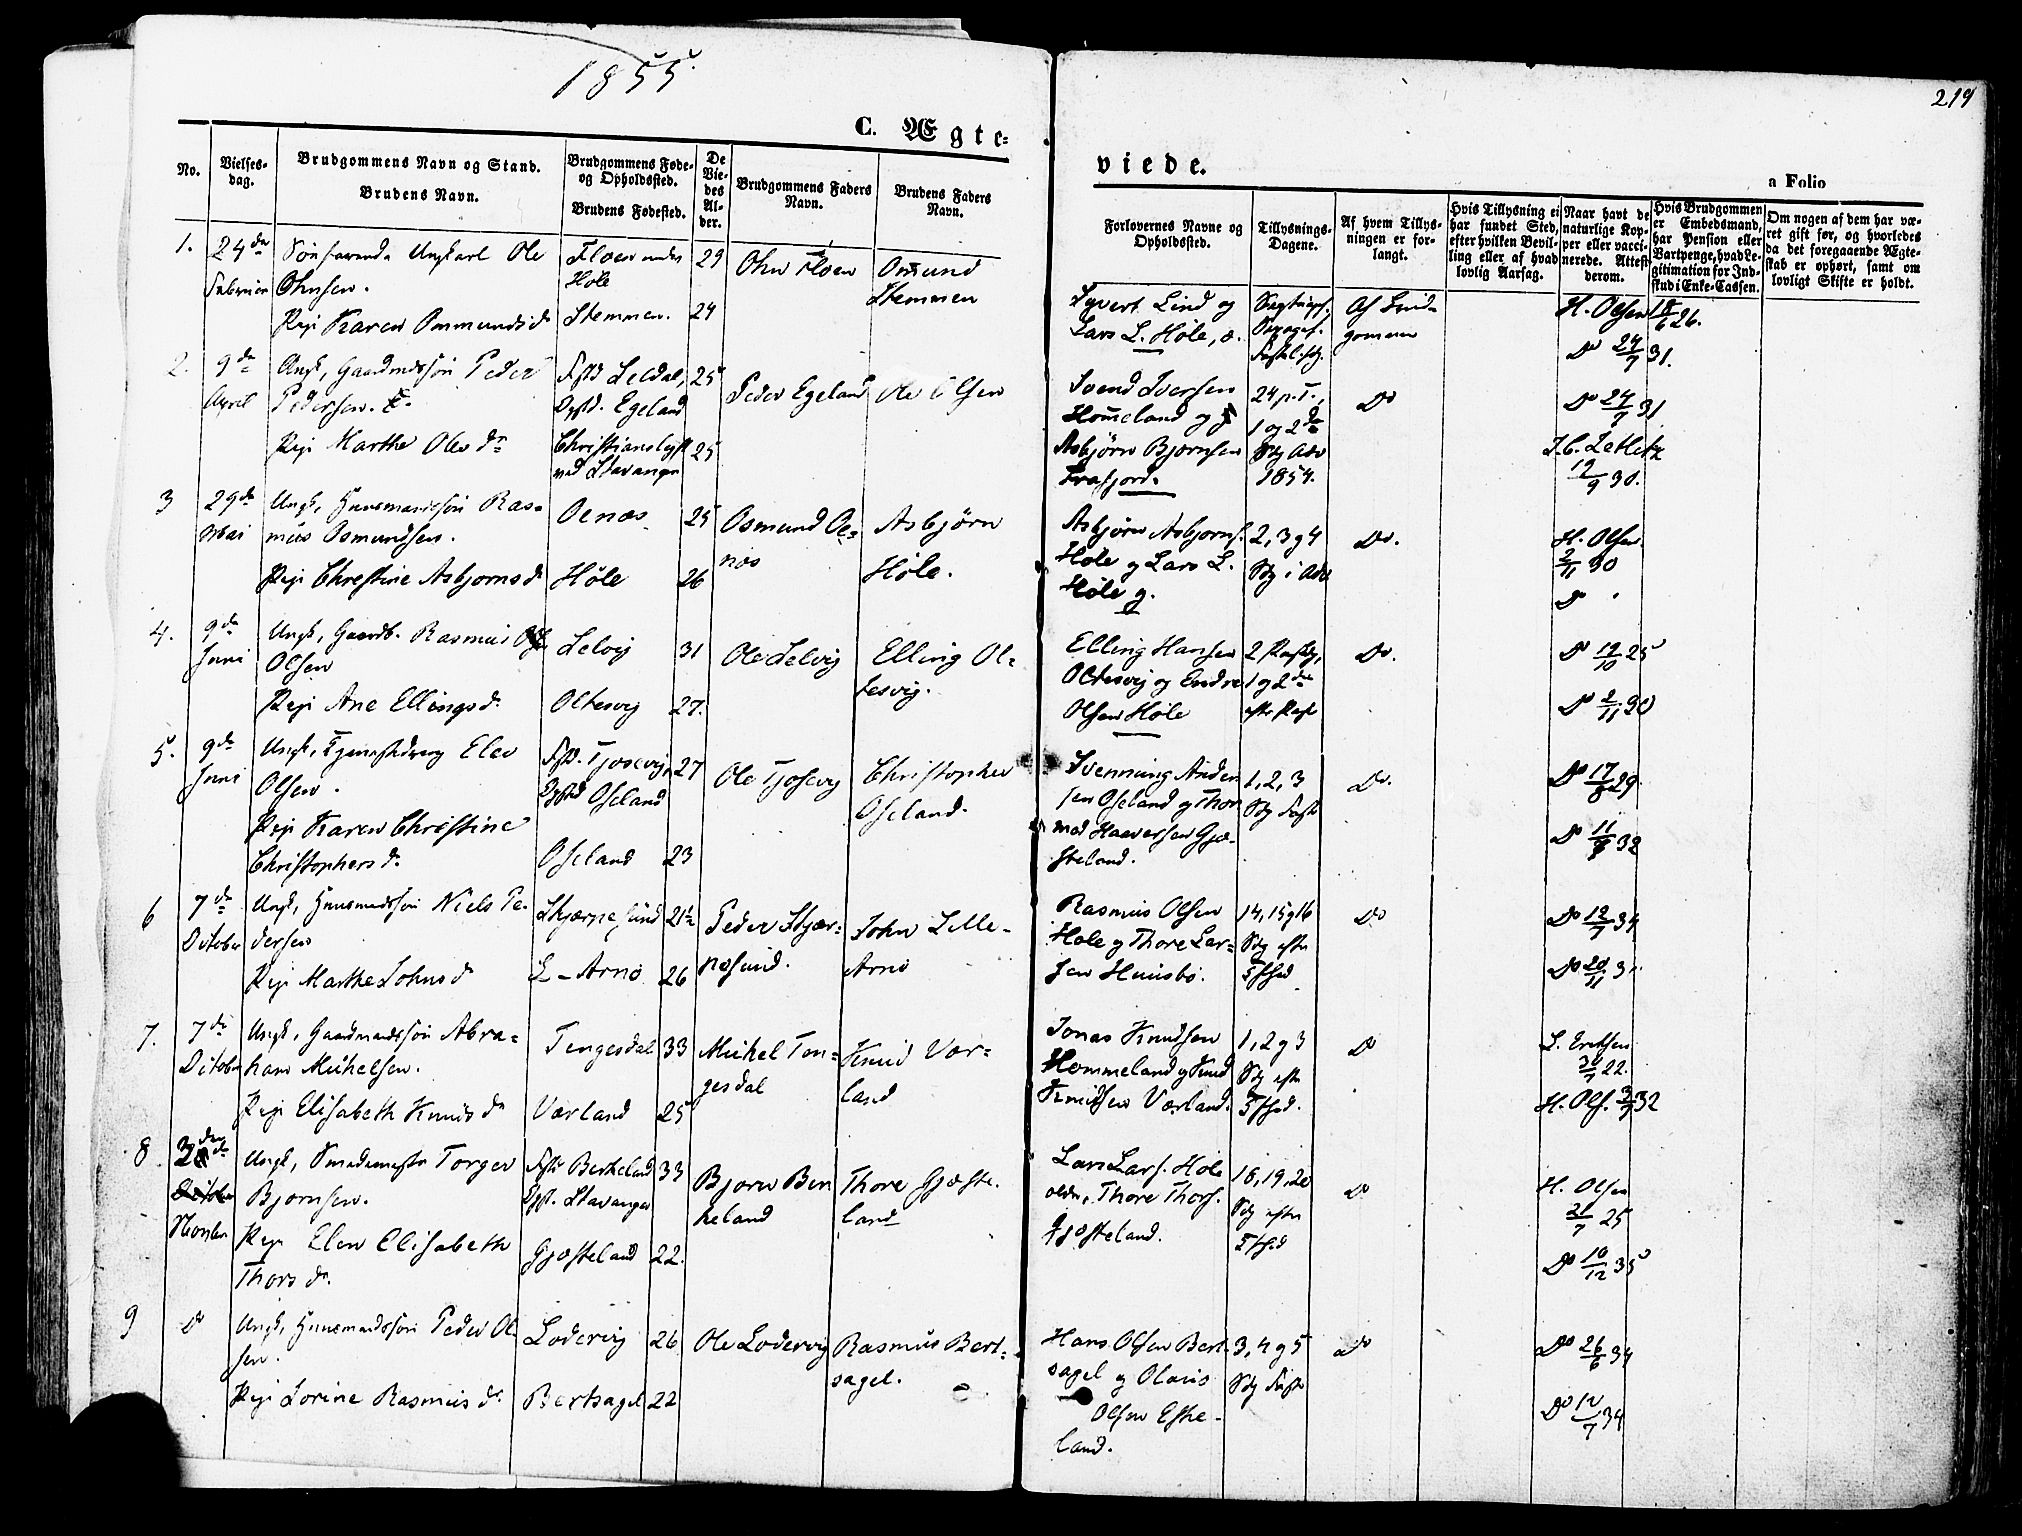 1855.
219
C. Ægte=
viede.
a Folio
No.
Vielses-
dag.
Brudgommens Navn og Stand.
Brudens Navn.
Brudgommens Føde-
og Opholdssted.
Brudens Fødested.
De
Vie-
des
Al-
der.
Brudgommens Faders
Navn.
Brudens Faders
Navn.
Forlovernes Navne og
Opholdssted.
Tillysnings-
Dagene.
Af hvem Tillys-
ningen er for-
langt.
Hvis Tillysning ei
har fundet Sted,
efter hvilken Bevil-
ling eller af hvad
lovlig Aarsag.
Naar havt de
naturlige Kop-
per eller vacci-
nerede. Attest
derom.
Hvis Brudgommen
er Embedsmand,
har Pension eller
Vartpenge, hvad Le-
gitimation for Ind-
skud i Enke-Cassen.
Om nogen af dem har væ-
ret gift før, og hvorledes
da det foregaaende Ægte-
skab er ophørt, samt om
lovligt Skifte er holdt.
1.
24de
Februar
Ungkarl Ole
Ohnsen.
Pige Karen Ommundsd.
Floen under
Høle
Stemmen.
29
24
Ohn Floen
Omund
Stemmen
Syvert Lind og
Lars L. Høle, æ.
Af Brud-
gommen
H. Olsen 18/6 26.
Do 24/7 31.
2.
9de
April
Ungk, Gaardmdssøn Peder
Pedersen.
Pige Marthe Olesdr
Fstd Leldal,
Opstd. Egeland
Christianslyst
ved Stavanger
25
25
Peder Egeland
Ole Olsen
Svend Iversen
Homeland og
Asbjørn Bjørnsen
Frafjord.
24 p. T.,
1 og 2de
Sdg Adv
1854.
Do
Do 24/7 31
J. C. Zetlitz
19/9 30.
3
29de
Mai
Ungk, Huusmandssøn Ras-
mus Osmundsen.
Pige Christine Asbjørnsd.
Oenæs
Høle
25
26
Osmund Oe-
næs
Asbjørn
Høle.
Asbjørn Asbjørns.
Høle og Lars L.
Høle y.
2, 3 og 4
Sdg i Adv
Do.
H. Olsen.
2/11 30
Do
4.
9de
Juni
Ungk, Gaardb. Rasmus
Olsen
Pige Ane Ellingsd.
Lelvig
Oltesvig
31
27.
Ole Lelvig
Elling Ol-
tesvig.
Elling Hansen
Oltesvig og Endre
Olsen Høle
2 Paaskd,
1 og 2de
efter Paask
Do.
Do 19/10 25
Do 2/11 30
5.
9de
Juni
Ungk, Tjenestedreng Elev
Olsen.
Pige Karen Christine
Christophersd.
Fstd. Tjøsevig,
Opstd Oseland
Oseland
27
23
Ole Tjøsevig
Christopher
Oseland.
Svenning Ander-
sen Oseland og Thor
mod Haaversen Gjæ-
steland.
1, 2, 3
Sdg Faste
Do.
Do 17/8 29.
Do 11/8 32
6
7de
October
Ungk, Huusmdssøn Niels Pe-
dersen
Pige Marthe Johnsd
Skjørpesund
L - Arnø
21½
26
Peder Skjør-
pesund.
John Lille-
Arnø
Rasmus Olsen
Høle og Thore Lar-
sen Huusbø.
14, 15 og 16
Sdg efter
Do
Do 12/7 34
Do 20/11 3
7.
7de
October
Ungk, Gaardmandssøn Abra-
ham Mikkelsen.
Pige Elisabeth Knudsdr
Tengesdal
Værland
33
25
Mikkel Ten-
gesdal
Knud Vær-
land
Jonas Knudsen
Hommeland og Knud
Knudsen Værland.
1, 2 og 3
Sdg efter
Do
L. Eriksen
22.
H. Ols. 32
8.
October
Novbr
Ungk, Smedemester Torger
Bjørnsen.
Pige Elen Elisabeth
Thorsd.
Fstd Berkeland
Opst. Stavanger
Gjøsteland
33
22.
Bjørn Ber
keland
Thore Gjøste-
land
Lars Lars. Høle
ældre, Thore Thors.
Gjøsteland.
18, 19, 20
Sdg efter
Do
H. Olsen
21/7 25
Do 10/12 35
9
Do
Ungk, Huusmandssøn Peder Ol-
sen.
Pige Lorine Rasmusd.
Lodervig
Bertsagel
26
22
Ole Lodervig
Rasmus Bert-
sagel.
Hans Olsen Bert-
sagel og Olaus
Olsen Eske-
land.
3, 4 og 5
Sdg Faste
Do
Do 26/6 34
Do 12/7 34